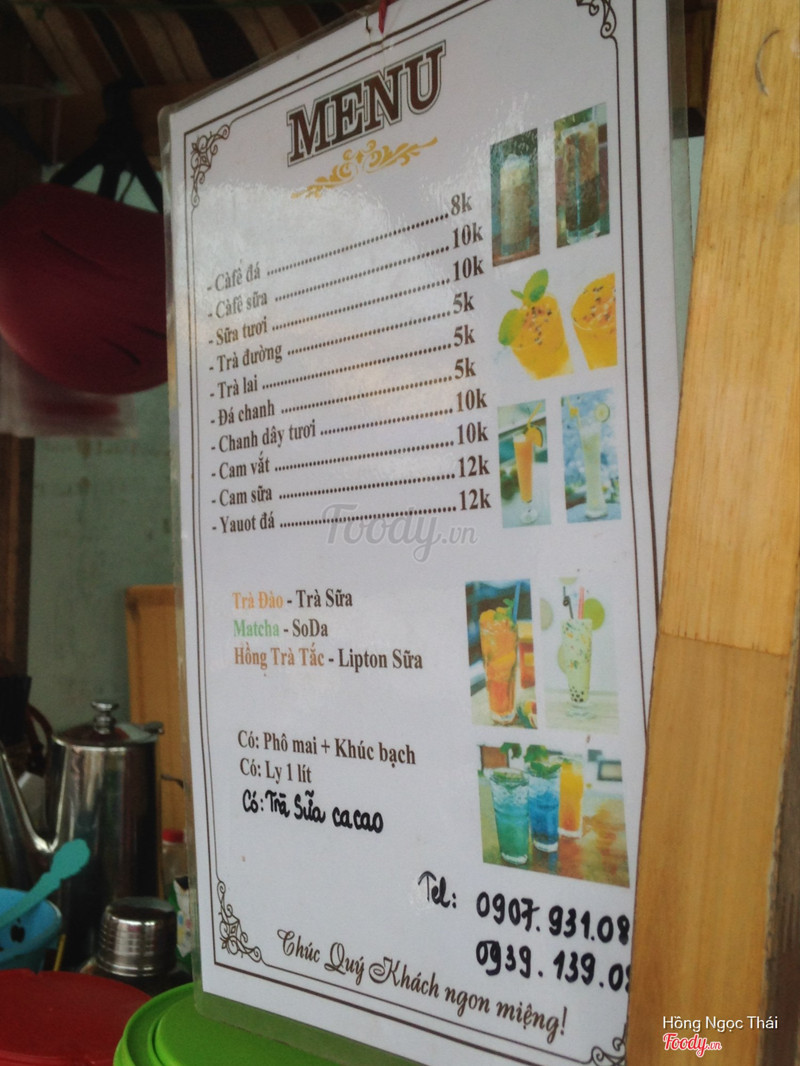 MENU
- Càfê đá ........ 8k
- Càfê sữa ........ 10k
- Sữa tươi ........ 10k
- Trà đường ........ 5k
- Trà lai ........ 5k
- Đá chanh ........ 5k
- Chanh dây tươi ........ 10k
- Cam vắt ........ 10k
- Cam sữa ........ 12k
- Yauot đá ........ 12k
Foody.vn
Trà Đào - Trà Sữa
Matcha - SoDa
Hồng Trà Tắc - Lipton Sữa
Có: Phô mai + Khúc bạch
Có: Ly 1 lít
Có: Trà Sữa cacao
Tel: 0907.931.08
0939.139.0
Chúc Quý Khách ngon miệng!
Hồng Ngọc Thái
Foody.vn